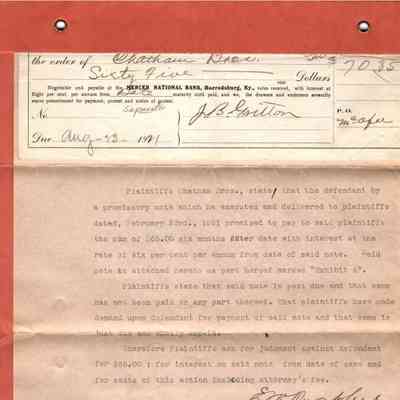 the order of Chatham Bros.
70.35
Sixty Five Dollars
Negotiable and payable at the MERCER NATIONAL BANK, Harrodsburg, Ky., value received, with interest at
per cent per annum from date maturity until paid, and we, the drawers and endorsers severally
waive presentment for payment, protest and notice of protest.
No. J.B. Gritton P.O.
Due Aug-23-1921 McAfee
Plaintiffs Chatham Bros., state/ that the defendant by
a promissory note which he executed and delivered to plaintiffs
dated, February 23rd., 1921 promised to pay to said plaintiffs
the sum of $65.00 six months after date with interest at the
rate of six per cent per annum from date of said note. Said
note is attached hereto as part hereof marked "Exhibit A".
Plaintiffs state that said note is past due and that same
has not been paid or any part thereof. That plaintiffs have made
demand upon defendant for payment of said note and that same is
but due and wholly unpaid.
Therefore Plaintiffs ask for judgment against defendant
for $65.00 ; for interest on said note from date of same and
for costs of this action including attorney's fee.